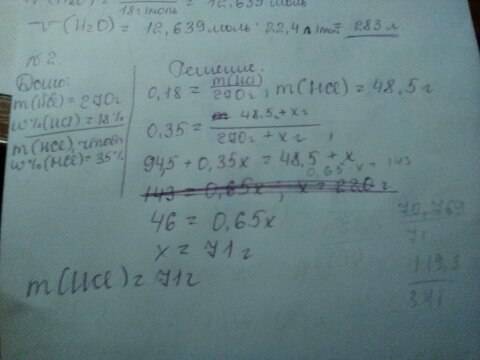 18г/моль = 12,639 моль
V(H2O) = 12,639 моль · 22,4 л/моль = 283 л
№2
Дано:
m(HCl) = 270г
w%(HCl) = 18%
w%(HCl) = 35%
Решение:
0,18 = m(HCl) / 270г, m(HCl) = 48,5г
0,35 = 48,5 + xг / 270г + xг,
94,5 + 0,35x = 48,5 + x
0,65x = 143
143 = 0,65x, x = 220г
46 = 0,65x
x = 71г
m(HCl) = 71г
70,769
71